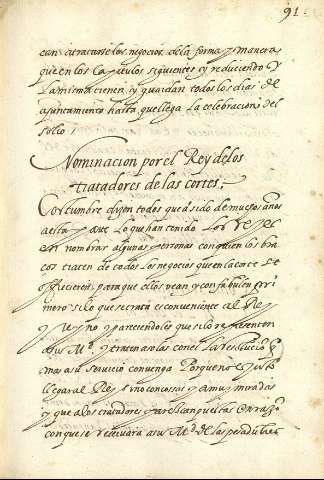 91
con tratarse los negocios de la forma y manera
que en los Capitulos siguientes y reduciendo y
La misma tienen y guardan todos los dias de
ayuntamiento hasta que llega la celebracion del
sollo,
Nominacion por el Rey de los
tratadores de las cortes;
Costumbre dizen todos que a sido de muchos años
a esta parte Lo que han tenido Los reyes
en nombrar algunas personas con quien los bra
cos traten de todos los negocios que en la corte se
ofrecieren, para que ellos vean y consulten pri
mero si lo que se trata es conveniente al Rey
y Reyno y pareciendoles que si lo representen
a su Md. y traten a las cortes La resolucion q
mas a su servicio convenga Porque no es justo
llegar al Rey sino con cosas ya muy miradas
y que a los tratadores parezcan puestas en razon
con que se relevara a su Md. de las pesadumbres